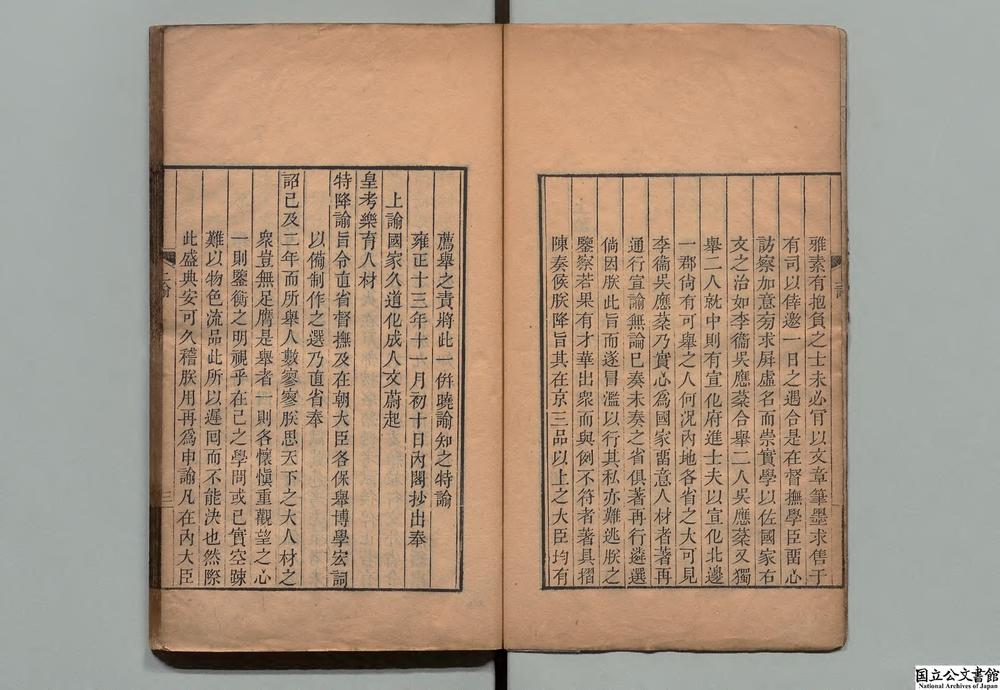 雅素有抱負之士未必肎以文章筆墨求售于
有司以倖邀一日之遇合是在督撫學臣畱心
訪察加意旁求屏虛名而崇實學以佐國家右
文之治如李衞吳應棻合舉二人吳應棻又獨
舉二人就中則有宣化府進士夫以宣化北邊
一郡尙有可舉之人何況內地各省之大可見
李衞吳應棻乃實心爲國家畱意人材者著再
通行宣諭無論已奏未奏之省俱著再行遴選
倘因朕此旨而遂冒濫以行其私亦難逃朕之
鑒察若果有才華出衆而與例不符者著具摺
陳奏候朕降旨其在京三品以上之大臣均有
薦舉之責將此一倂曉諭知之特諭
雍正十三年十一月初十日內閣抄出奉
上諭國家久道化成人文蔚起
皇考樂育人材
特降諭旨令直省督撫及在朝大臣各保舉博學宏詞
以備制作之選乃直省奉
詔已及二年而所舉人數寥寥朕思天下之大人材之
衆豈無足膺是舉者一則各懷愼重觀望之心
一則鑒衡之明視乎在己之學問或已實空踈
難以物色流品此所以遲囘而不能決也然際
此盛典安可久稽朕用再爲申諭凡在內大臣
上諭
三
国立公文書館
National Archives of Japan